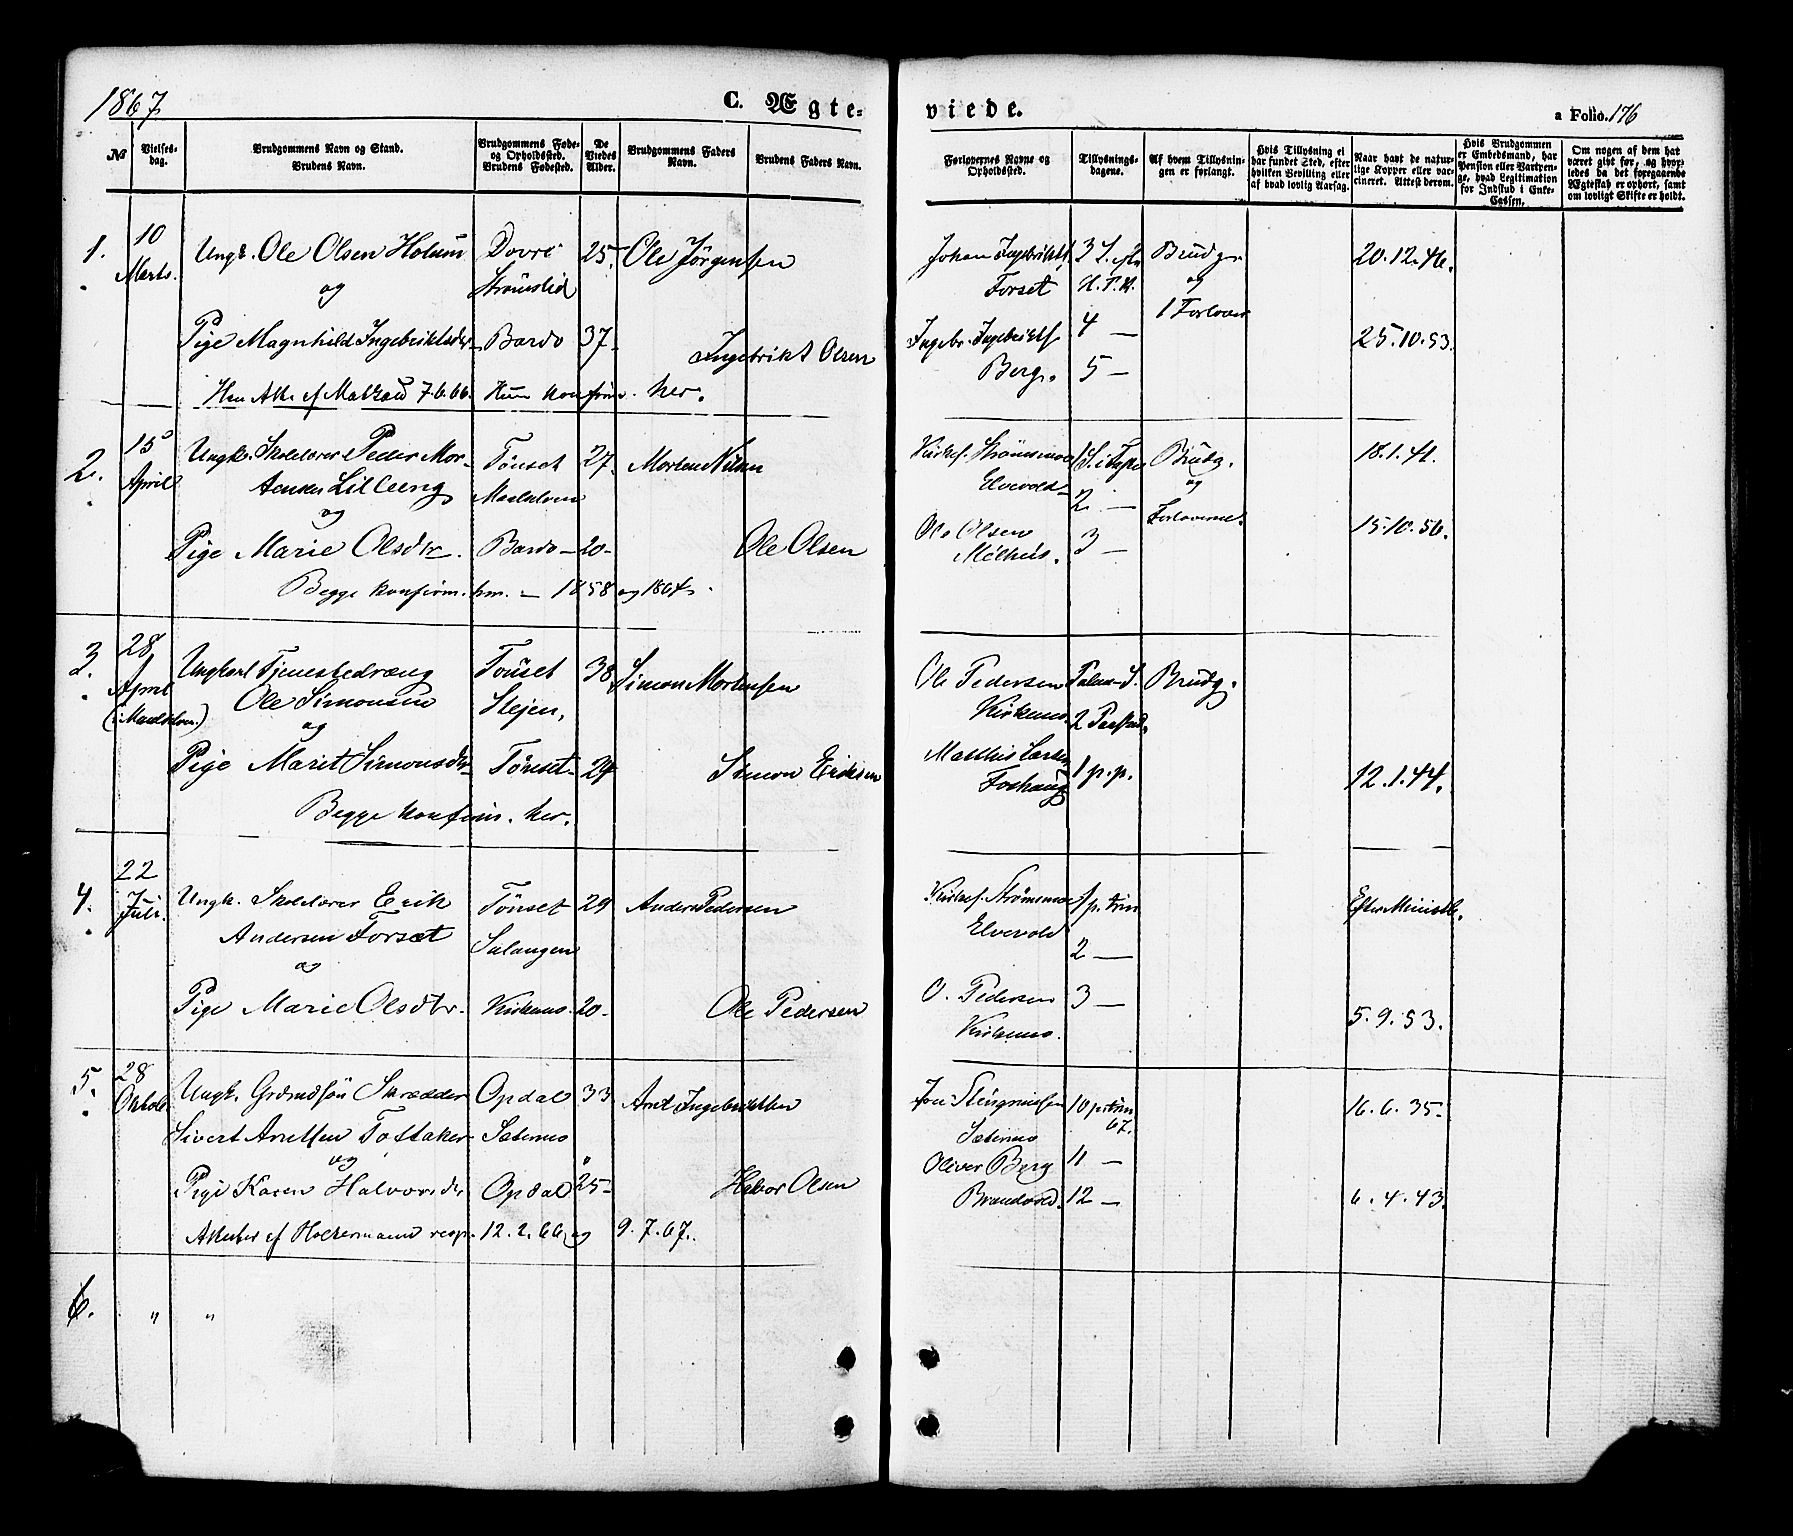 1867
C. Ægte-
viede.
a Folio. 176
№
Vielses-
dag.
Brudgommens Navn og Stand.
Brudens Navn.
Brudgommens Føde-
og Opholdssted.
Brudens Fødested.
De
Viedes
Alder.
Brudgommens Faders
Navn.
Brudens Faders Navn.
Forlovernes Navne og
Opholdssted.
Tillysnings-
dagene.
Af hvem Tillysnin-
gen er forlangt.
Hvis Tillysning ei
har fundet Sted, efter
hvilken Bevilling eller
af hvad lovlig Aarsag.
Naar havt de natur-
lige Kopper eller vac-
cineret. Attest derom.
Hvis Brudgommen
er Embedsmand, har
Pension eller Vartpen-
ge, hvad Legitimation
for Indskud i Enke-
Cassen.
Om nogen af dem har
været gift før, og hvor-
ledes da det foregaaende
Ægteskab er ophørt, samt
om lovligt Skifte er holdt.
1. 10 Marts.
Ungk. Ole Olsen Holum Dovre 25. Ole Jørgensen
og Strømslid
Pige Magnhild Ingebriktsdr Bardo 37. Ingebrikt Olsen
7.6.66. Hun konfirm. her.
Johan Ingebriktsf. Brudg.
Forset og
4 — 1 Forlover
Ingebr. Ingebriktsf.
Berg. 5 —
20.12.46.
25.10.53.
2. 15 April
Ungk. Skolelærer Peder Mor- Tønset 27. Morten Nilsen
tensen Lilleeng Maalselven
og
Pige Marie Olsdtr. Bardo — 20 — Ole Olsen
Begge konfirm. her. — 1858 og 1864.
Strømsmoe Brudg.
Elvevold 2 — og
Ole Olsen Forloverne.
Mølhus. 3 —
18.1.41.
15.10.56.
3. 28 April
(i Maalselven.)
Ungkarl Tjenestedræng Tønset 38 Simon Mortensen
Ole Simonsen Stejen,
og
Pige Marit Simonsdr Tønset 29 Simon Eriksen
Begge konfirm. her.
Ole Pedersen Palme S. Brudg.
Kirkemo. 2 Paaskd.
Matthis Larsen 1 p. p.
Foshaug
12.1.44.
4. 22 Juli.
Ungk. Skolelærer Erik Tønset 29 Anders Pedersen
Andersen Forset Salangen
og
Pige Marie Olsdtr. Kirkemo. 20 — Ole Pedersen
Strømsmoe 1 p. trin
Elvevold 2 —
O. Pedersen 3 —
Kirkemo.
5.9.53.
5. 28 Oktob.
Ungk. Grdmdsøn Skrædder Opdal 33 Arnt Ingebriktsen
Sivert Arntsen Toftaker Sætermo
og
Pige Karen Halvorsdr Opdal 25 — Halvor Olsen
Attester af Holtermann resp. 12.2.66, og 9.7.67.
10 p. trin 67.
Sætermo
Oliver Berg 11 —
Brandvold. 12 —
16.6.35.
6.4.43.
6. " "